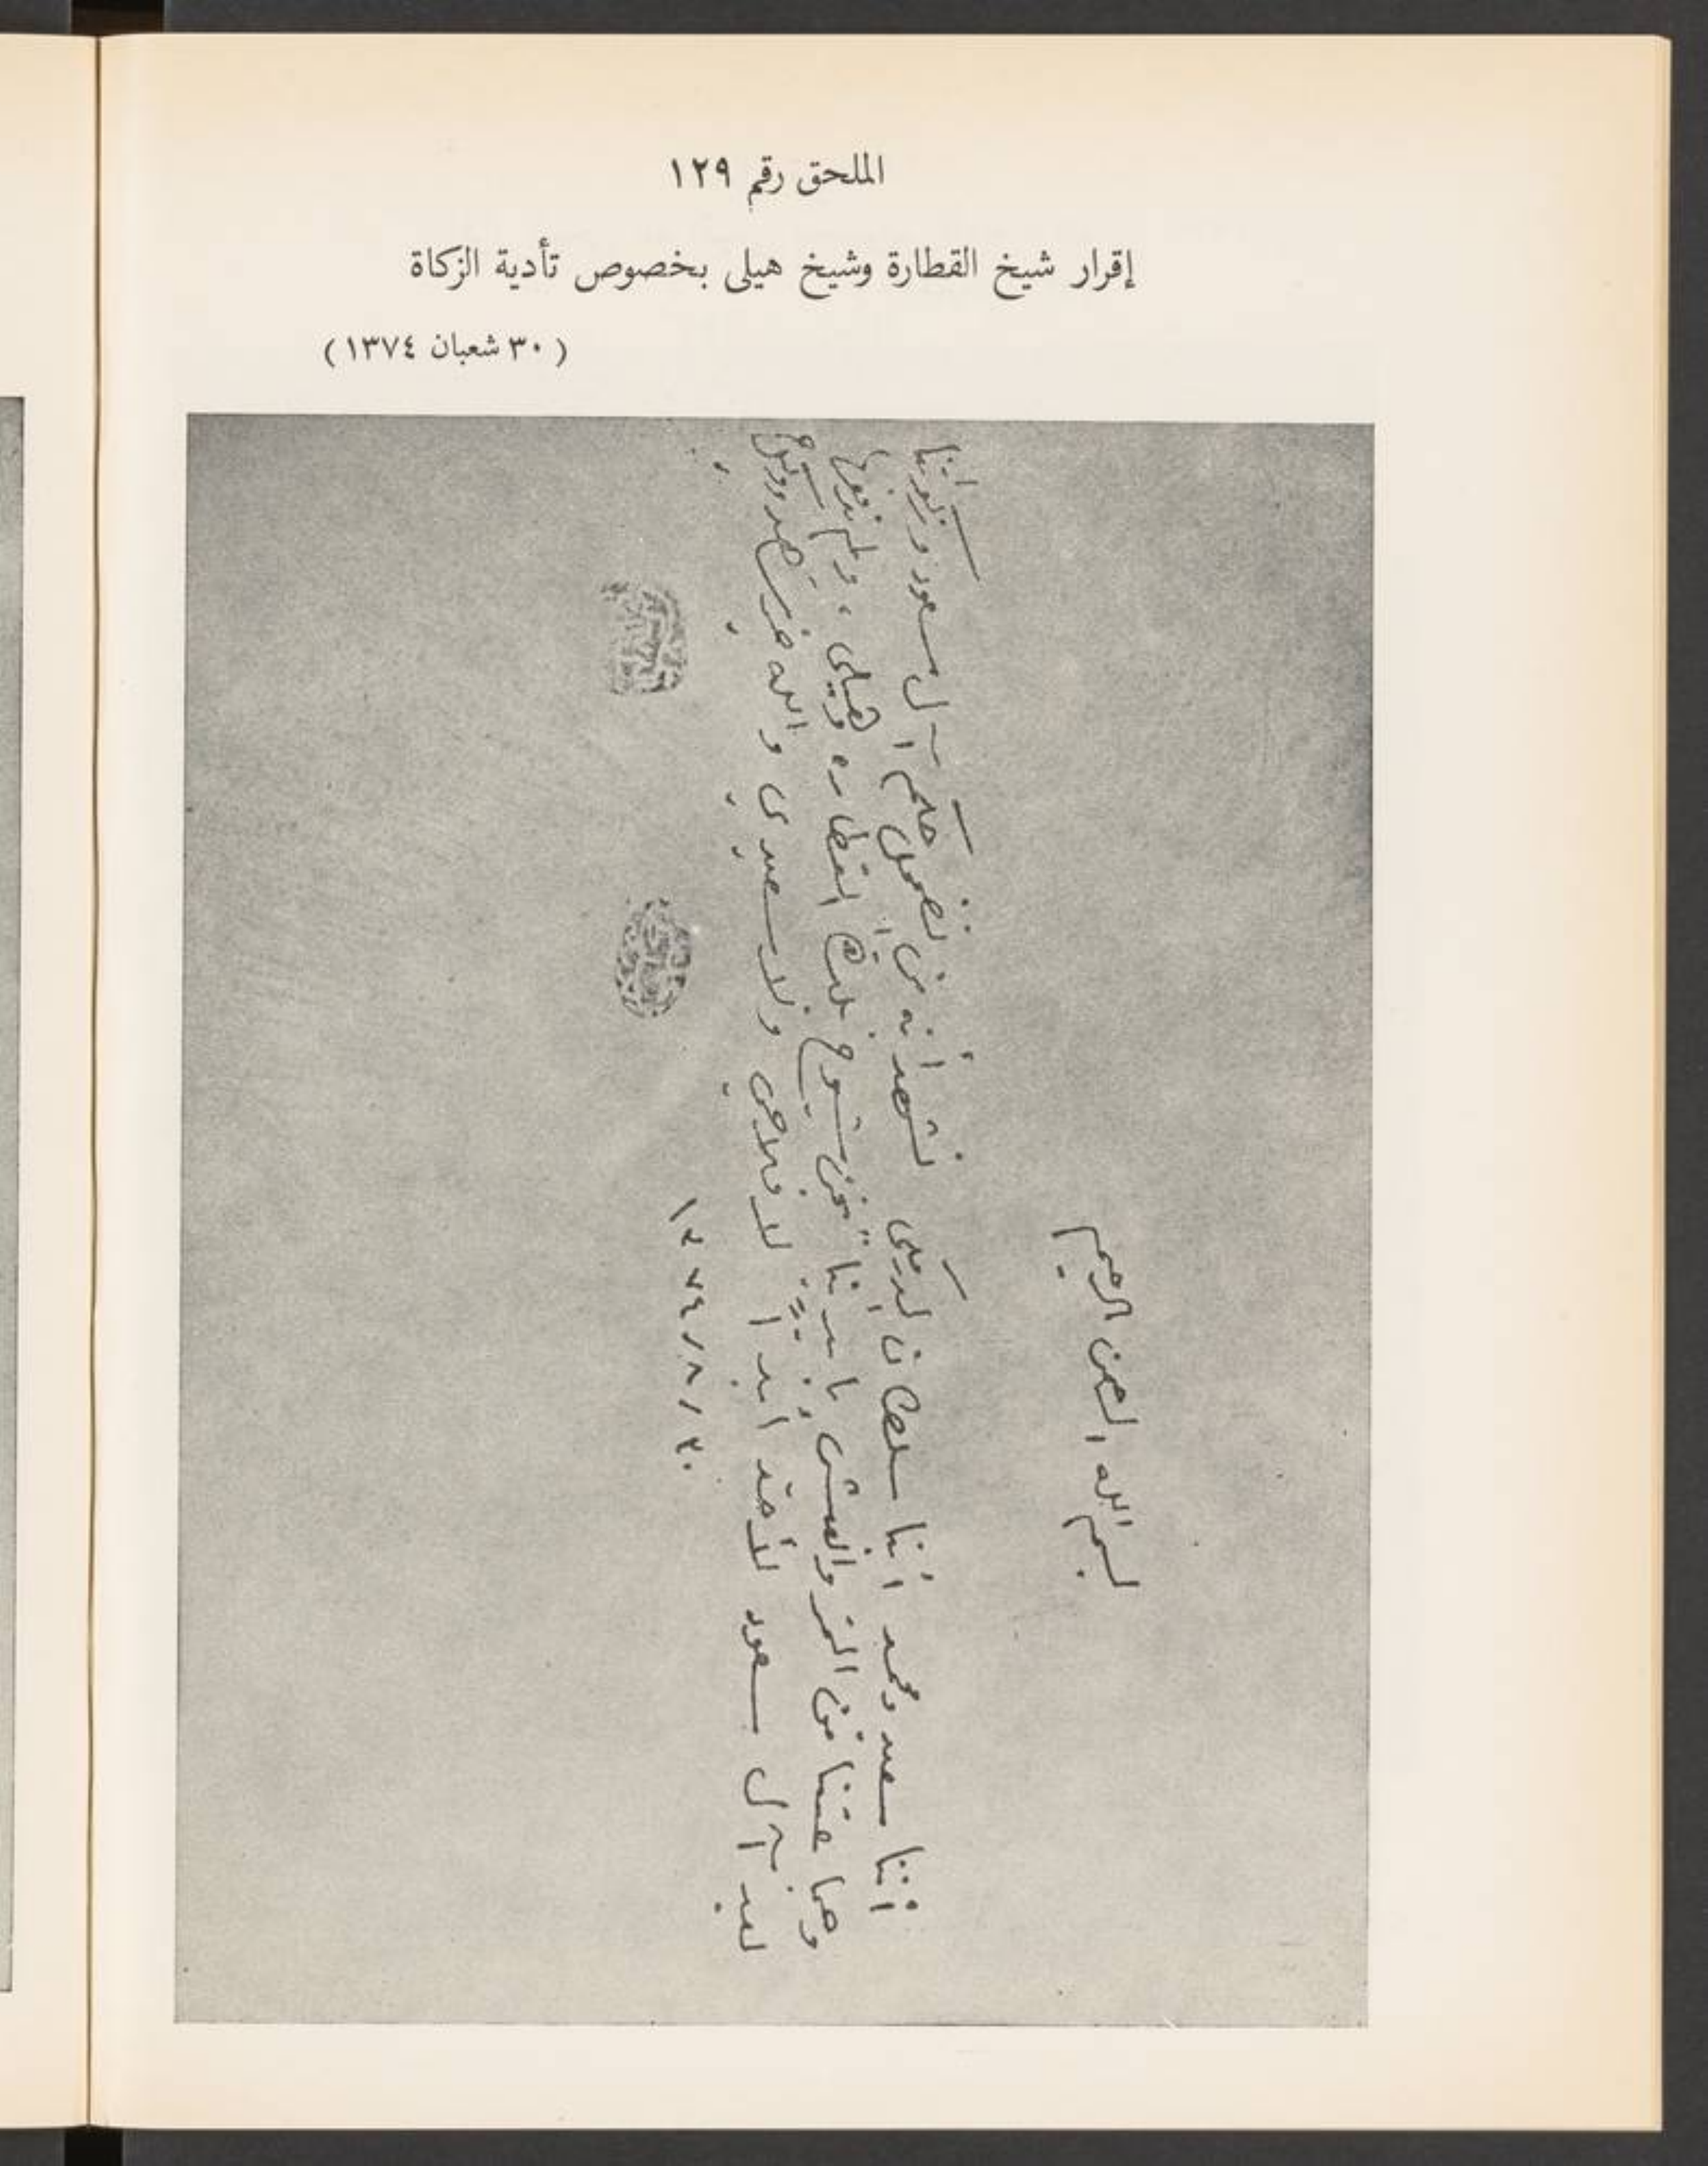 الملحق رقم ١٢٩
إقرار شيخ القطارة وشيخ هيلى بخصوص تأدية الزكاة
( ٣٠ شعبان ١٣٧٤ )
بسم الله الرحمن الرحيم
أننا سعيد ومحمد أبنا سلطان الدرمكى نشهد أنه من تضمول حكم آل سعود وزكوتنا
وهما عتنا من التمر والعيش بايدنا نحن شيوخ القطاره وهيلى ، ولم ندفعها
لعبد آل سعود لأحد ابدا لا فلاحى ولا سعيدى والله خير شاهد ووكيل
١٣٧٤/٨/٣٠